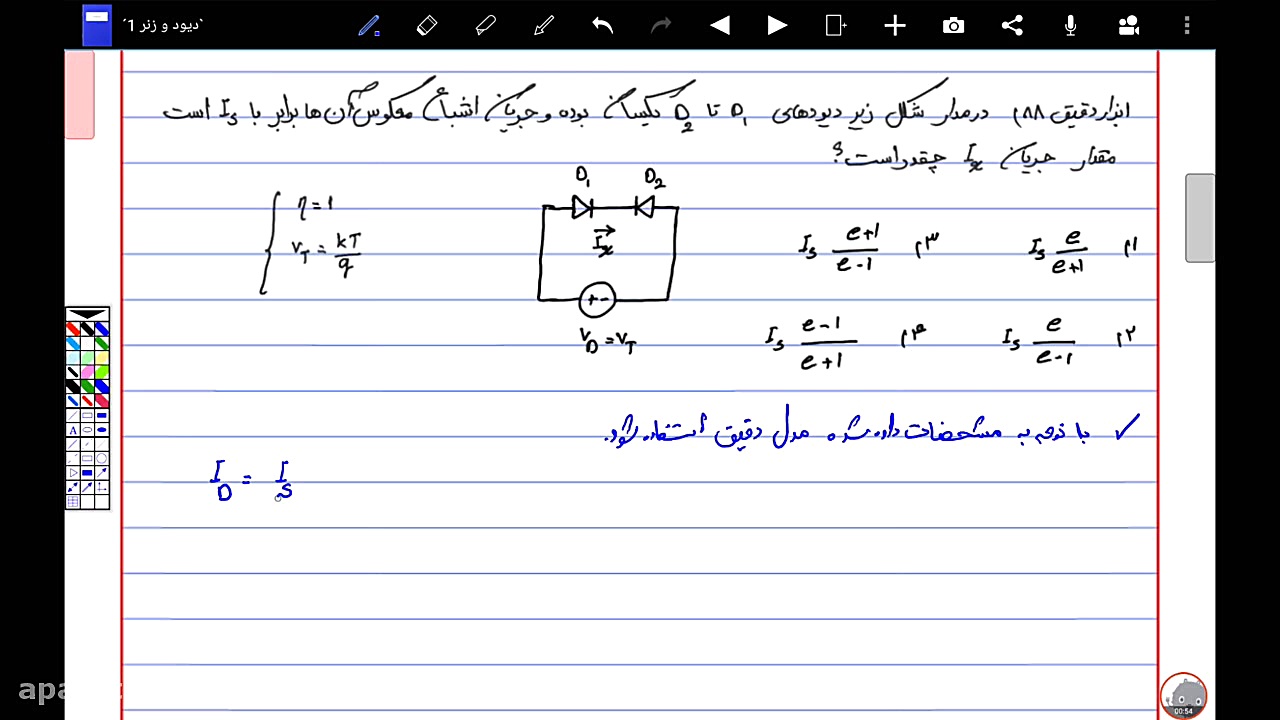 ´دیود و زنر 1`
ابزار دقیق ۸۸) در مدار شکل زیر دیودهای D1 تا D2 یکسان بوده و جریان اشباع معکوس آن ها برابر با Is است
مقدار جریان Ix چقدر است؟
D1 D2
η = 1
VT = kT/q
Ix
VD = VT
۱) Is e/(e+1)
۳) Is (e+1)/(e-1)
۲) Is e/(e-1)
۴) Is (e-1)/(e+1)
✓ با توجه به مشخصات داده شده مدل دقیق استفاده شود.
ID = Is
apa
00:54